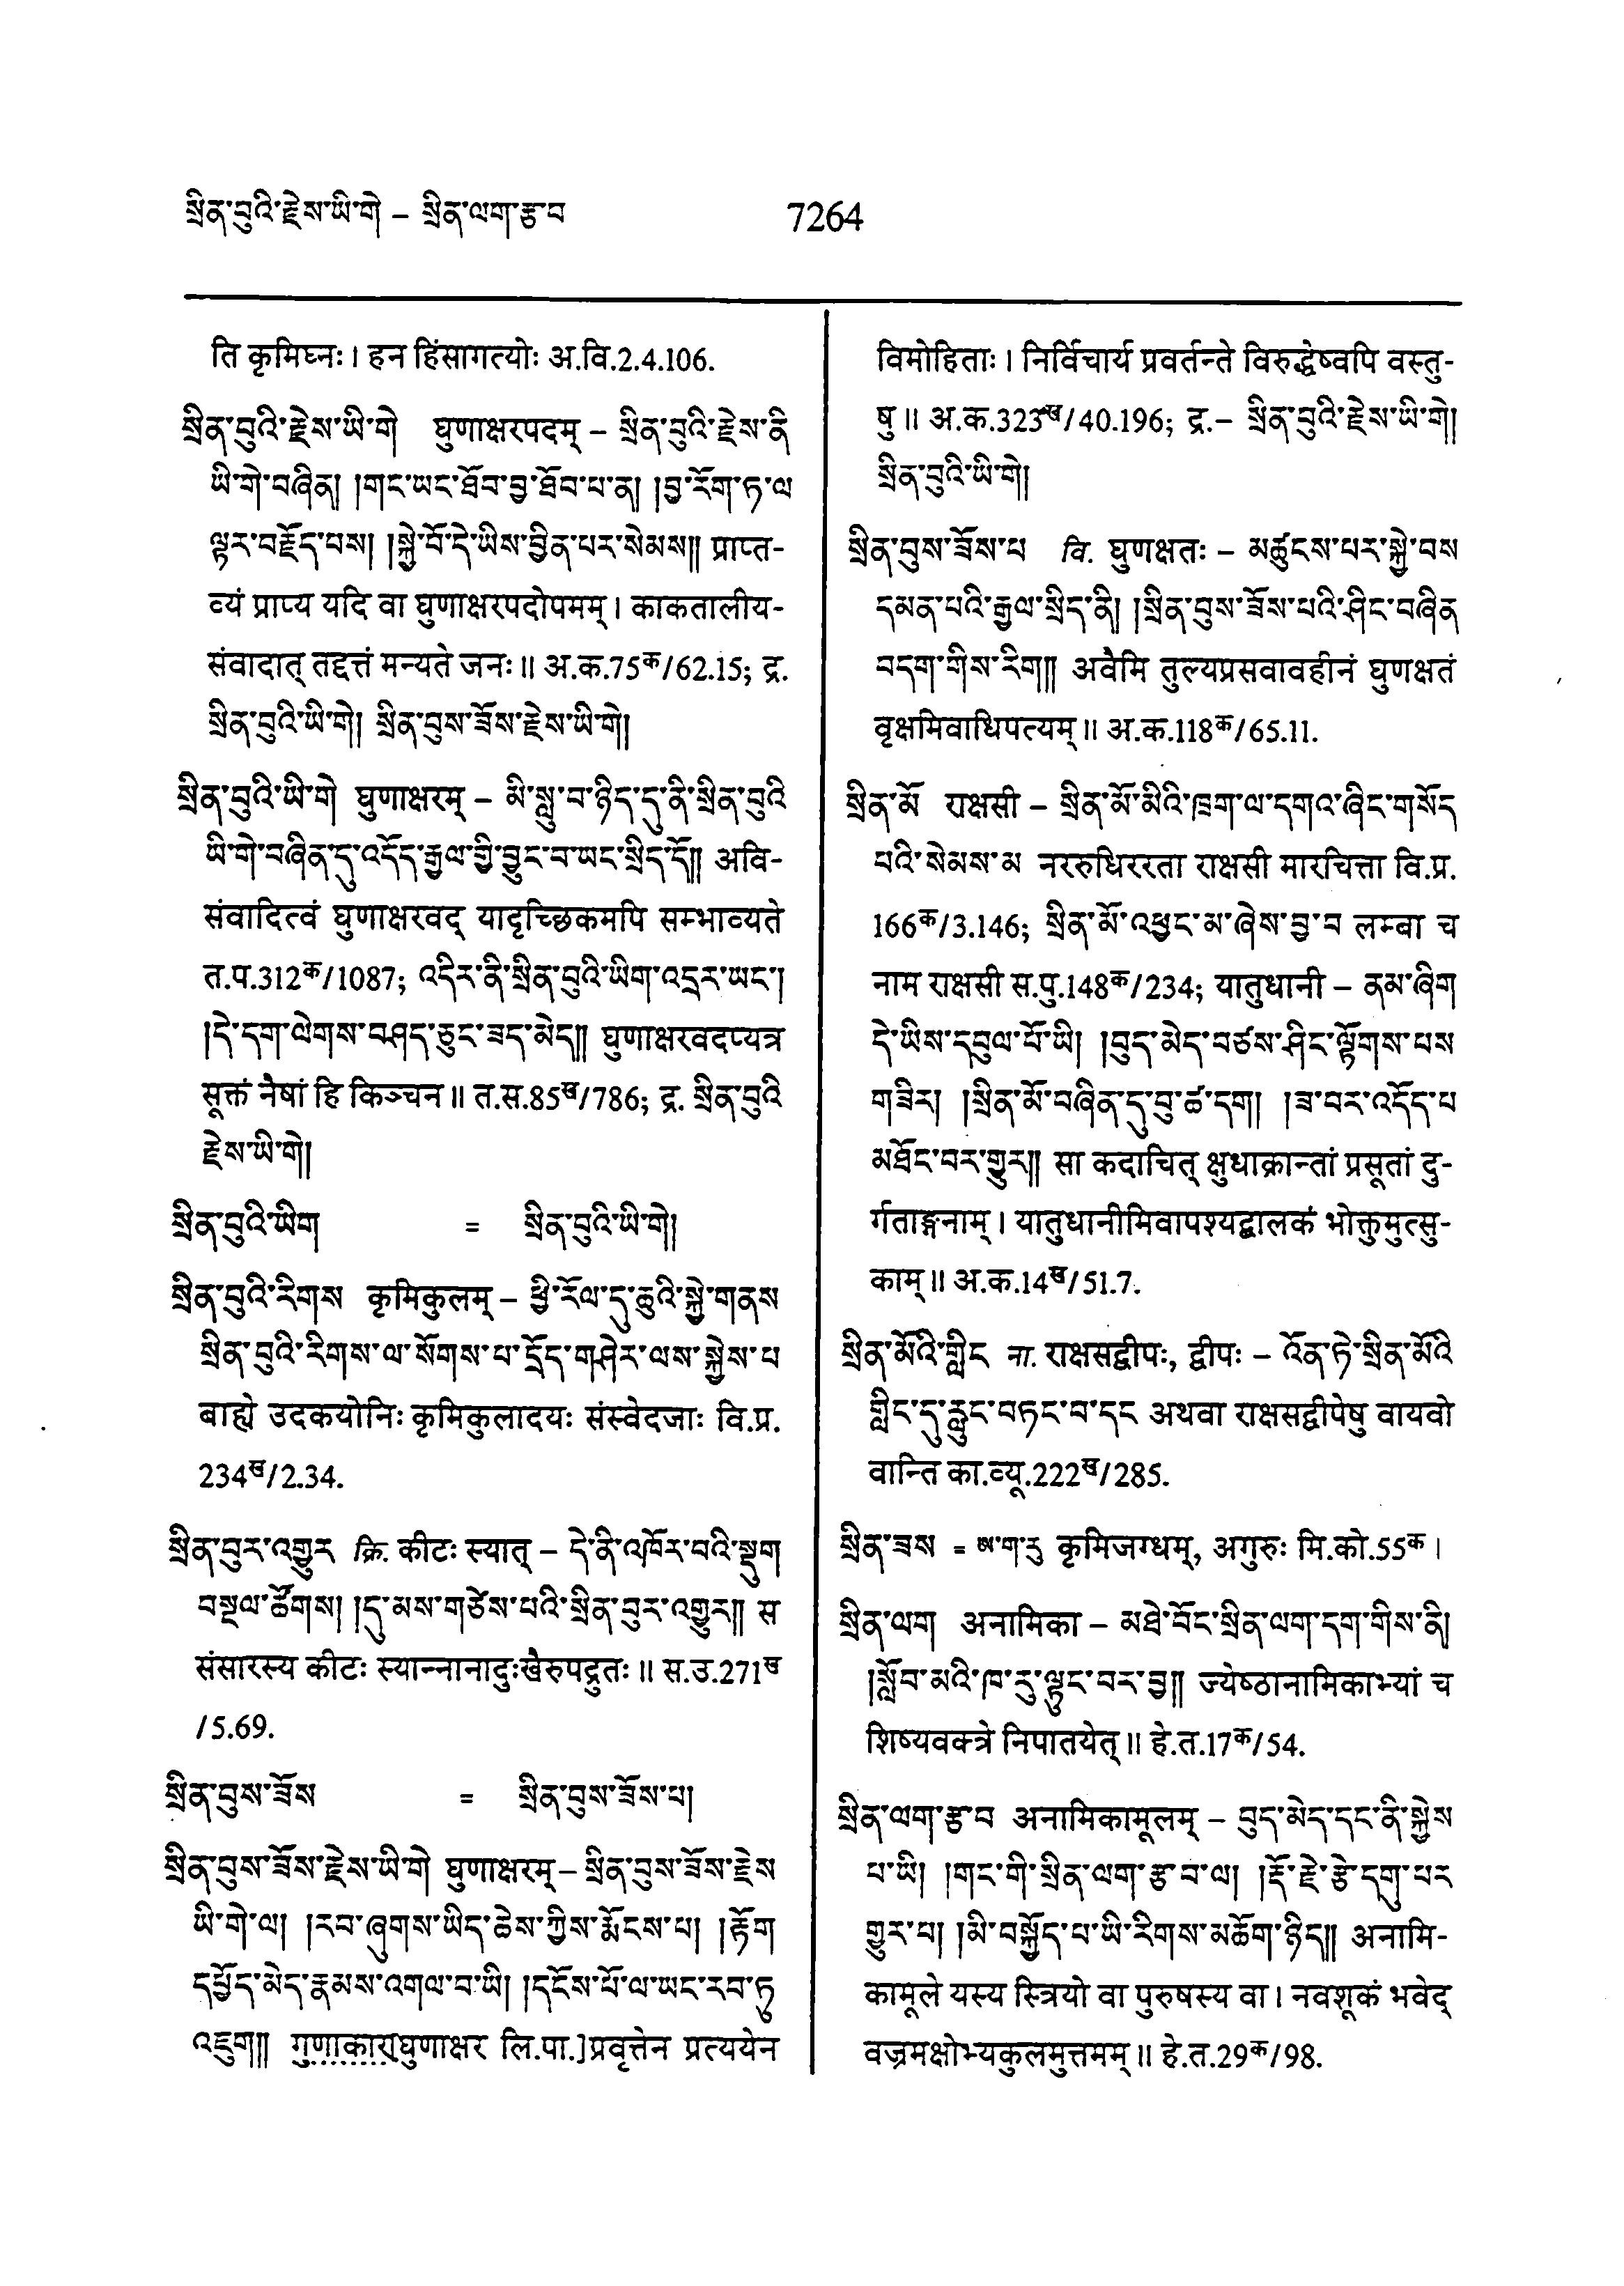 སྲིན་བུའི་རྗེས་ཡི་གེ – སྲིན་ལག་རྩ་བ
7264
ति कृमिघ्नः। हन हिंसागत्योः अ.वि.2.4.106.
སྲིན་བུའི་རྗེས་ཡི་གེ घुणाक्षरपदम् – སྲིན་བུའི་རྗེས་ནི
ཡི་གེ་བཞིན། །གང་ཡང་ཐོབ་བྱ་ཐོབ་པ་ན། །བྱ་རོག་ཏ་ལ
ལྟར་བརྗོད་པས། །སྐྱེ་བོ་དེ་ཡིས་བྱིན་པར་སེམས།། प्राप्त-
व्यं प्राप्य यदि वा घुणाक्षरपदोपमम्। काकतालीय-
संवादात् तद्दत्तं मन्यते जनः॥ अ.क.75क/62.15; द्र.
སྲིན་བུའི་ཡི་གེ། སྲིན་བུས་ཟོས་རྗེས་ཡི་གེ།
སྲིན་བུའི་ཡི་གེ घुणाक्षरम् – མི་སླུ་བ་ཉིད་དུ་ནི་སྲིན་བུའི
ཡི་གེ་བཞིན་དུ་འདོད་རྒྱལ་གྱི་བྱུང་བ་ཡང་སྲིད་དོ།། अवि-
संवादित्वं घुणाक्षरवद् यादृच्छिकमपि सम्भाव्यते
त.प.312क/1087; འདིར་ནི་སྲིན་བུའི་ཡིག་འདྲར་ཡང་།
།དེ་དག་ལེགས་བཤད་ཅུང་ཟད་མེད།། घुणाक्षरवदप्यत्र
सूक्तं नैषां हि किञ्चन॥ त.स.85ख/786; द्र. སྲིན་བུའི
རྗེས་ཡི་གེ།
སྲིན་བུའི་ཡིག = སྲིན་བུའི་ཡི་གེ།
སྲིན་བུའི་རིགས कृमिकुलम् – ཕྱི་རོལ་དུ་ཆུའི་སྐྱེ་གནས
སྲིན་བུའི་རིགས་ལ་སོགས་པ་དྲོད་གཤེར་ལས་སྐྱེས་པ
बाह्ये उदकयोनिः कृमिकुलादयः संस्वेदजाः वि.प्र.
234ख/2.34.
སྲིན་བུར་འགྱུར क्रि. कीटः स्यात् – དེ་ནི་འཁོར་བའི་སྡུག
བསྔལ་ཚོགས། །དུ་མས་གཙེས་པའི་སྲིན་བུར་འགྱུར།། स
संसारस्य कीटः स्यान्नानादुःखैरुपद्रुतः॥ स.उ.271ख
/5.69.
སྲིན་བུས་ཟོས = སྲིན་བུས་ཟོས་པ།
སྲིན་བུས་ཟོས་རྗེས་ཡི་གེ घुणाक्षरम् – སྲིན་བུས་ཟོས་རྗེས
ཡི་གེ་ལ། །རབ་ཞུགས་ཡིད་ཆེས་ཀྱིས་རྨོངས་པ། །རྟོག
དཔྱོད་མེད་རྣམས་འགལ་བ་ཡི། །དངོས་པོ་ལ་ཡང་རབ་ཏུ
འཇུག།། गुणाकारा(घुणाक्षर लि.पा.)प्रवृत्तेन प्रत्ययेन
विमोहिताः। निर्विचार्य प्रवर्तन्ते विरुद्धेष्वपि वस्तु-
षु॥ अ.क.323ख/40.196; द्र.– སྲིན་བུའི་རྗེས་ཡི་གེ།
སྲིན་བུའི་ཡི་གེ།
སྲིན་བུས་ཟོས་པ वि. घुणक्षतः – མཚུངས་པར་སྐྱེ་བས
དམན་པའི་རྒྱལ་སྲིད་ནི། །སྲིན་བུས་ཟོས་པའི་ཤིང་བཞིན
བདག་གིས་རིག།། अवैमि तुल्यप्रसवावहीनं घुणक्षतं
वृक्षमिवाधिपत्यम्॥ अ.क.118क/65.11.
སྲིན་མོ राक्षसी – སྲིན་མོ་མིའི་ཁྲག་ལ་དགའ་ཞིང་གསོད
པའི་སེམས་མ नररुधिररता राक्षसी मारचित्ता वि.प्र.
166क/3.146; སྲིན་མོ་འཕྱང་མ་ཞེས་བྱ་བ लम्बा च
नाम राक्षसी स.पु.148क/234; यातुधानी – ནམ་ཞིག
དེ་ཡིས་དབུལ་པོ་ཡི། །བུད་མེད་བཙས་ཤིང་ལྟོགས་པས
གཟིར། །སྲིན་མོ་བཞིན་དུ་བུ་ཚ་དག །ཟ་བར་འདོད་པ
མཐོང་བར་གྱུར།། सा कदाचित् क्षुधाक्रान्तां प्रसूतां दु-
र्गताङ्गनाम्। यातुधानीमिवापश्यद्बालकं भोक्तुमुत्सु-
काम्॥ अ.क.14ख/51.7.
སྲིན་མོའི་གླིང ना. राक्षसद्वीपः, द्वीपः – འོན་ཏེ་སྲིན་མོའི
གླིང་དུ་རླུང་བཏང་བ་དང अथवा राक्षसद्वीपेषु वायवो
वान्ति का.व्यू.222ख/285.
སྲིན་ཟས = ཨ་ག་རུ कृमिजग्धम्, अगुरुः मि.को.55क।
སྲིན་ལག अनामिका – མཐེ་བོང་སྲིན་ལག་དག་གིས་ནི།
།སློབ་མའི་ཁ་རུ་ལྟུང་བར་བྱ།། ज्येष्ठानामिकाभ्यां च
शिष्यवक्त्रे निपातयेत्॥ हे.त.17क/54.
སྲིན་ལག་རྩ་བ अनामिकामूलम् – བུད་མེད་དང་ནི་སྐྱེས
པ་ཡི། །གང་གི་སྲིན་ལག་རྩ་བ་ལ། །རྡོ་རྗེ་རྩེ་དགུ་པར
གྱུར་པ། །མི་བསྐྱོད་པ་ཡི་རིགས་མཆོག་ཉིད།། अनामि-
कामूले यस्य स्त्रियो वा पुरुषस्य वा। नवशूकं भवेद्
वज्रमक्षोभ्यकुलमुत्तमम्॥ हे.त.29क/98.